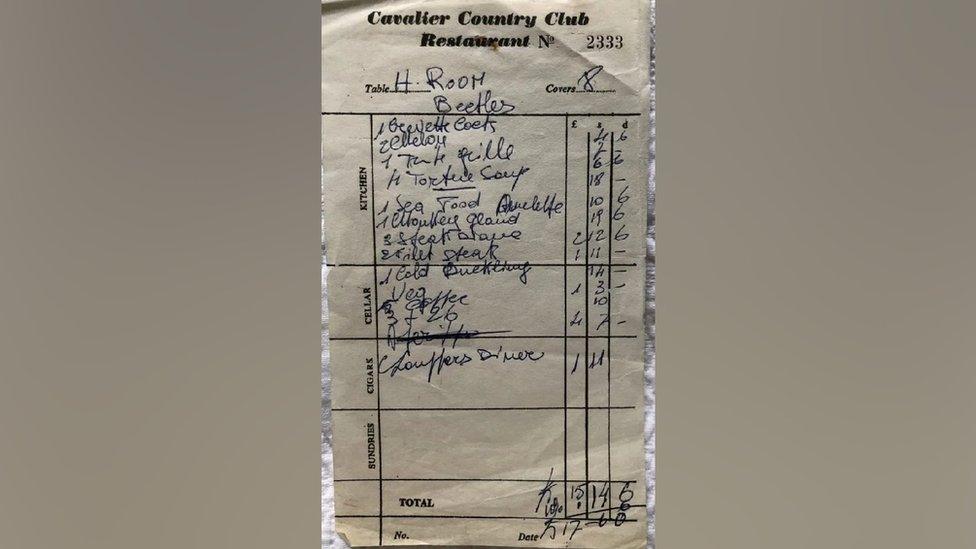 Cavalier Country Club
Restaurant Nº 2333
Table H. Room Covers 8
Beetles
£ s d
KITCHEN
1 Crevette Cocts 4 6
2 Melon 7
1 grille 6 6
4 Tortue Soup 18 -
1 Sea Food Omelette 10 6
1 Monkey gland 19 6
3 Steak Diane 2 12 6
2 Filet Steak 1 11 -
1 Cold Duckling 14 -
Veg 1 3 -
CELLAR
Coffee 10
3 £ 26 4 7 -
CIGARS
Chauffers Diner 1 11
SUNDRIES
TOTAL 15 14 6
10%
17 6 0
No. Date